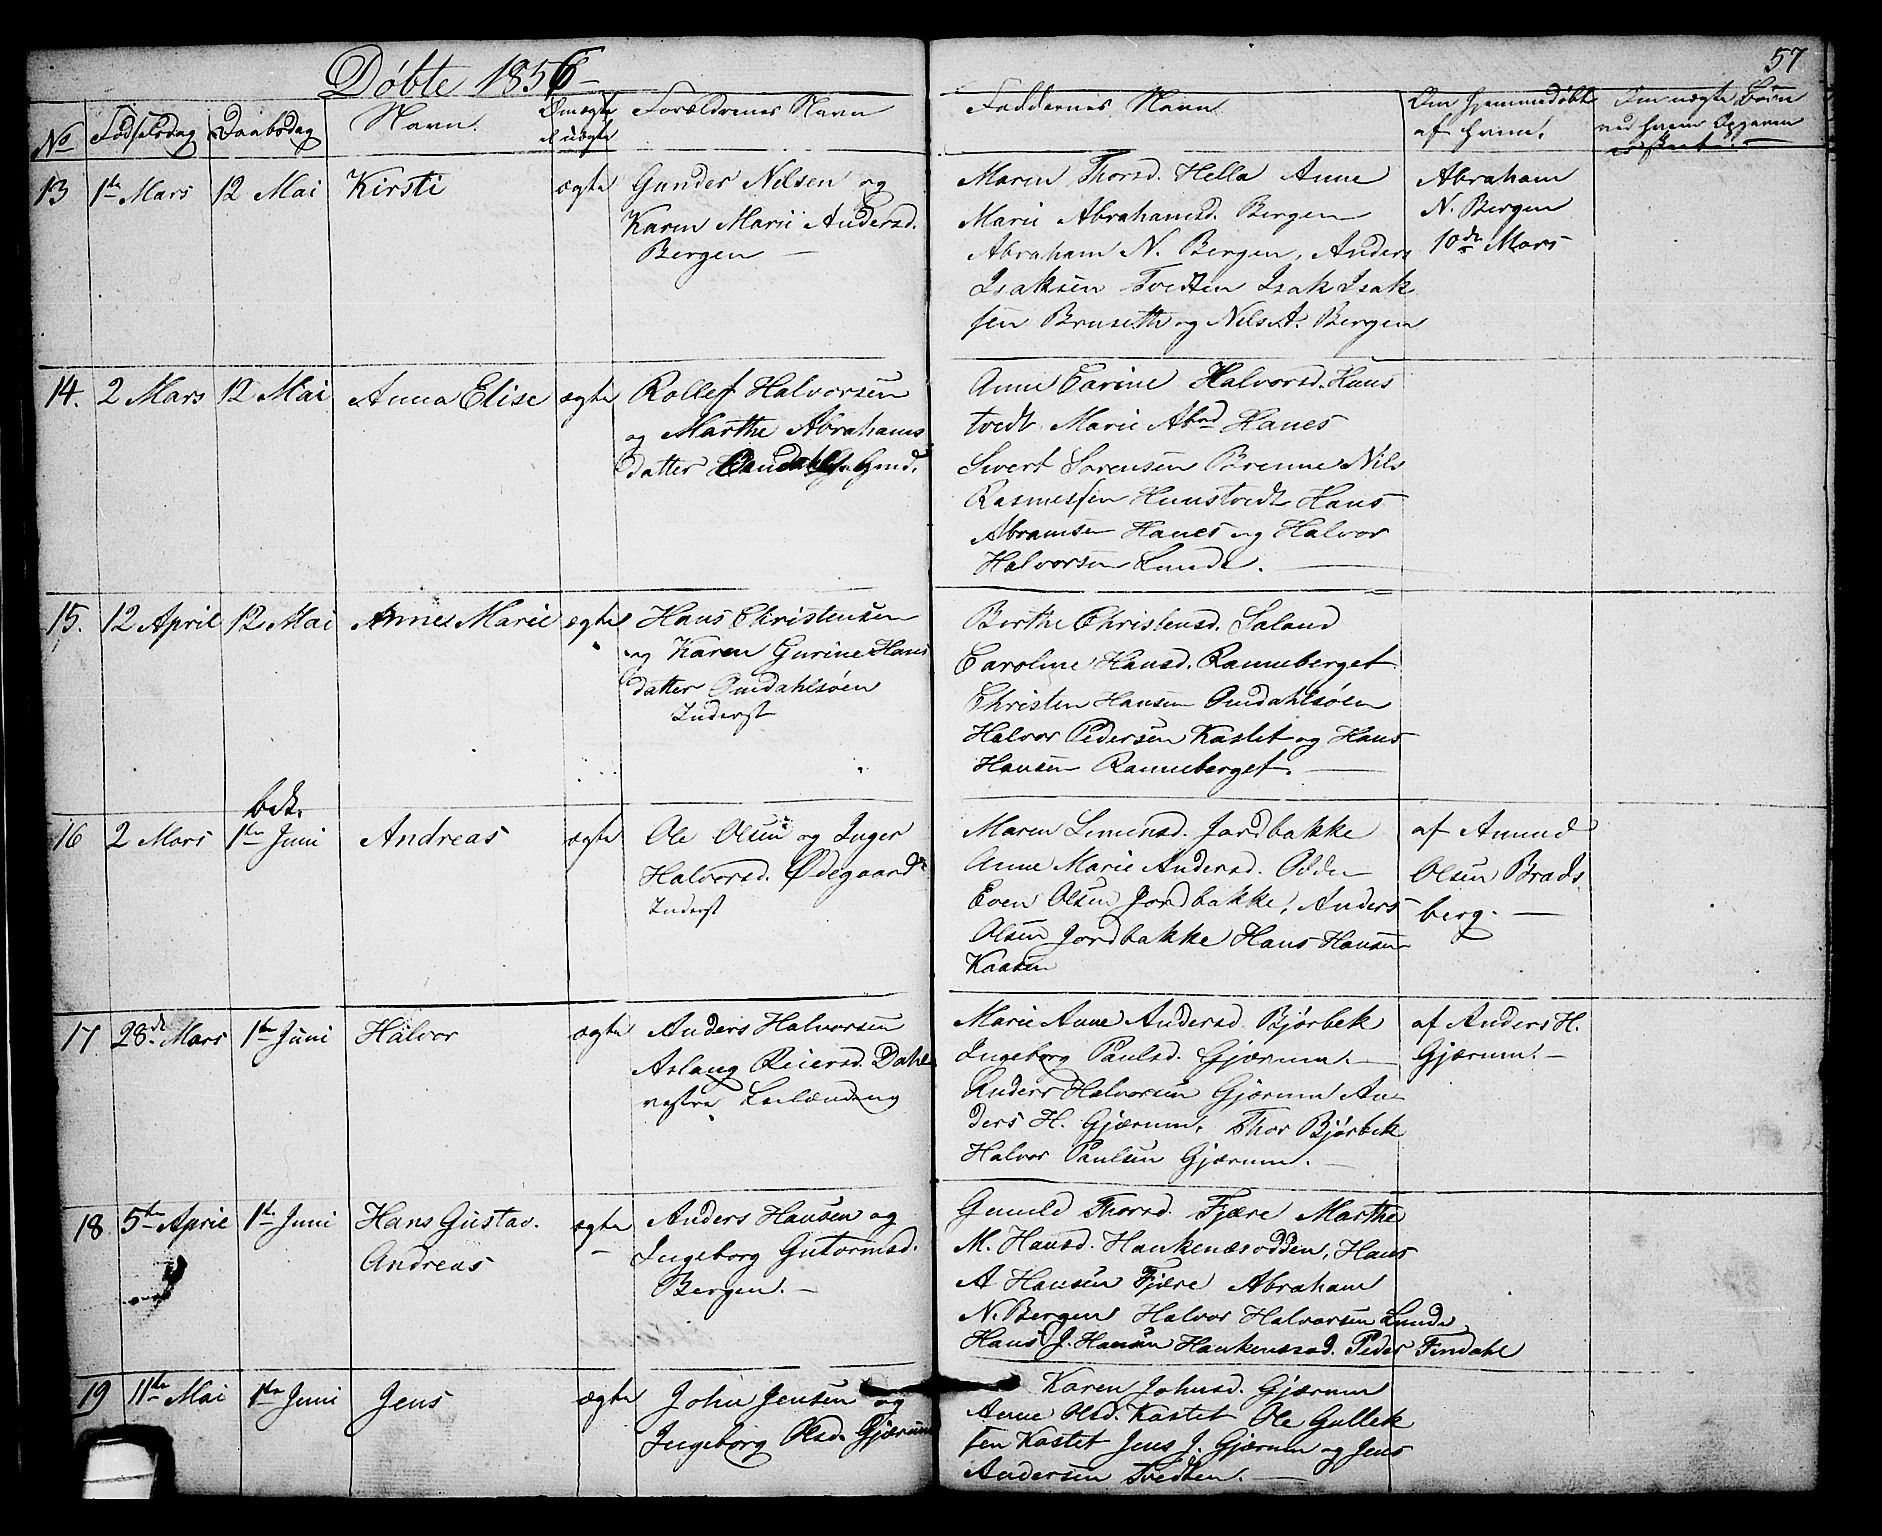 57
Døbte 1856
No Fødselsdag Daabsdag Navn. Om ægte el uægte Forældrenes Navn Faddernes Navn Om hjemmedøbt af hvem. Om uægte Børn ved hvem Opgaven
13 1te Mars 12 Mai Kirsti ægte
Gunder Nilsen og
Karen Marie Andersd.
Bergen
Maren Thorsd. Hella Anne
Marie Abrahamsd. Bergen
Abraham N. Bergen, Anders
Isaksen Tvedten Isak Isak
sen Bruseth og Nils A. Bergen
Abraham
N. Bergen
10de Mars
14. 2 Mars 12 Mai Anna Elise ægte
Rollef Halvorsen
og Marthe Abrahams
datter
Anne Carine Halvorsd. Haus
tvedt Marie Abrd Hanes
Sivert Sørensen Brenne Nils
Rasmussen Haustvedt Hans
Abramsen Hanes og Halvor
Halvorsen Lunde.
15. 12 April 12 Mai Anne Marie ægte
Hans Christensen
og Karen Gurine Hans
datter Omdahlsøen
Inderst
Berthe Christensd. Saland
Caroline Hansd. Ranneberget
Christen Hansen Omdahlsøen
Halvor Pedersen Kastet og Hans
Hansen Ranneberget.
bek.
16 2 Mars 1te Juni Andreas ægte
Ole Olsen og Inger
Halvorsd. Ødegaard
Inderst
Maren Simensd. Jordbakke
Anne Marie Andersd. Odde
Even Olsen Jordbakke, Anders
Olsen Jordbakke Hans Hansen
Kaasen
af Amund
Olsen Brads
berg.
17 28de Mars 1te Juni Halvor ægte
Anders Halvorsen
Aslaug Reiersd. Dahl
vestre Leilænding
Marie Anne Andersd Bjørbek
Ingeborg Paulsd. Gjærum.
Anders Halvorsen Gjærum An
ders H. Gjærum, Thor Bjørbek
Halvor Paulsen Gjærum.
af Anders H.
Gjærum.
18 5te April 1te Juni Hans Gustav. ægte
Andreas
Anders Hansen og
Ingeborg Gutormsd.
Bergen.
Gunild Thorsd. Fjære Marthe
M. Hansd. Haukenæsodden, Hans
A Hansen Fjære Abraham
N. Bergen Halvor Halvorsen Lunde
Hans J. Hansen Haukenæsod. Peder Temdahl
19 11te Mai 1te Juni Jens ægte
John Jensen og
Ingeborg Olsd. Gjærum
Karen Johnsd. Gjærum
Anne Olsd. Kastet Ole Gullek
sen Kastet Jens J. Gjærum og Jens
Andersen Tvedten.